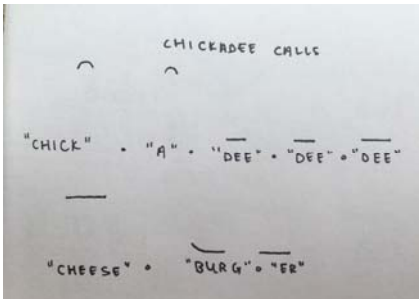 CHICKADEE CALLS
"CHICK" • "A" • "DEE" • "DEE" • "DEE"
"CHEESE" • "BURG" • "ER"